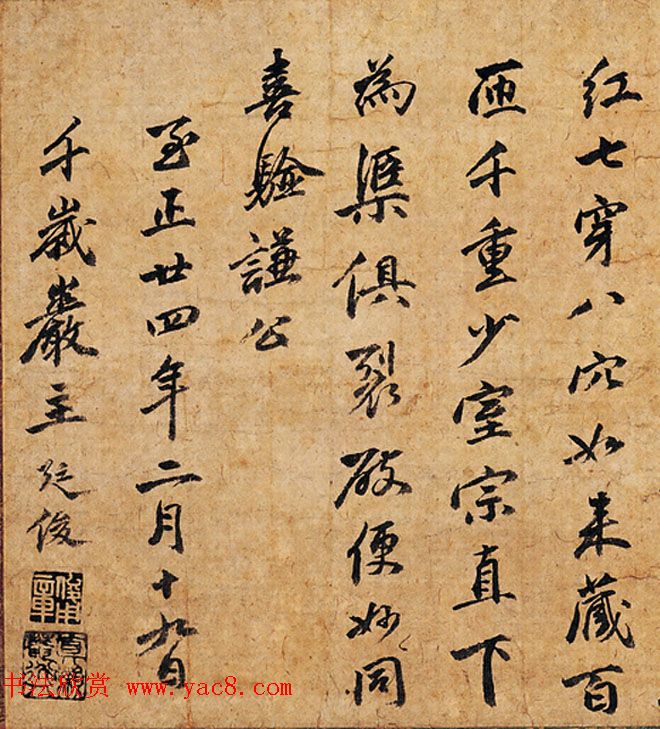 红七穿八穴如来藏百
匝千重少室宗直下
為渠俱裂破便妙同
喜驗謙公
至正廿四年二月十九日
千巖巖主
俊
书法欣赏 www.yac8.com